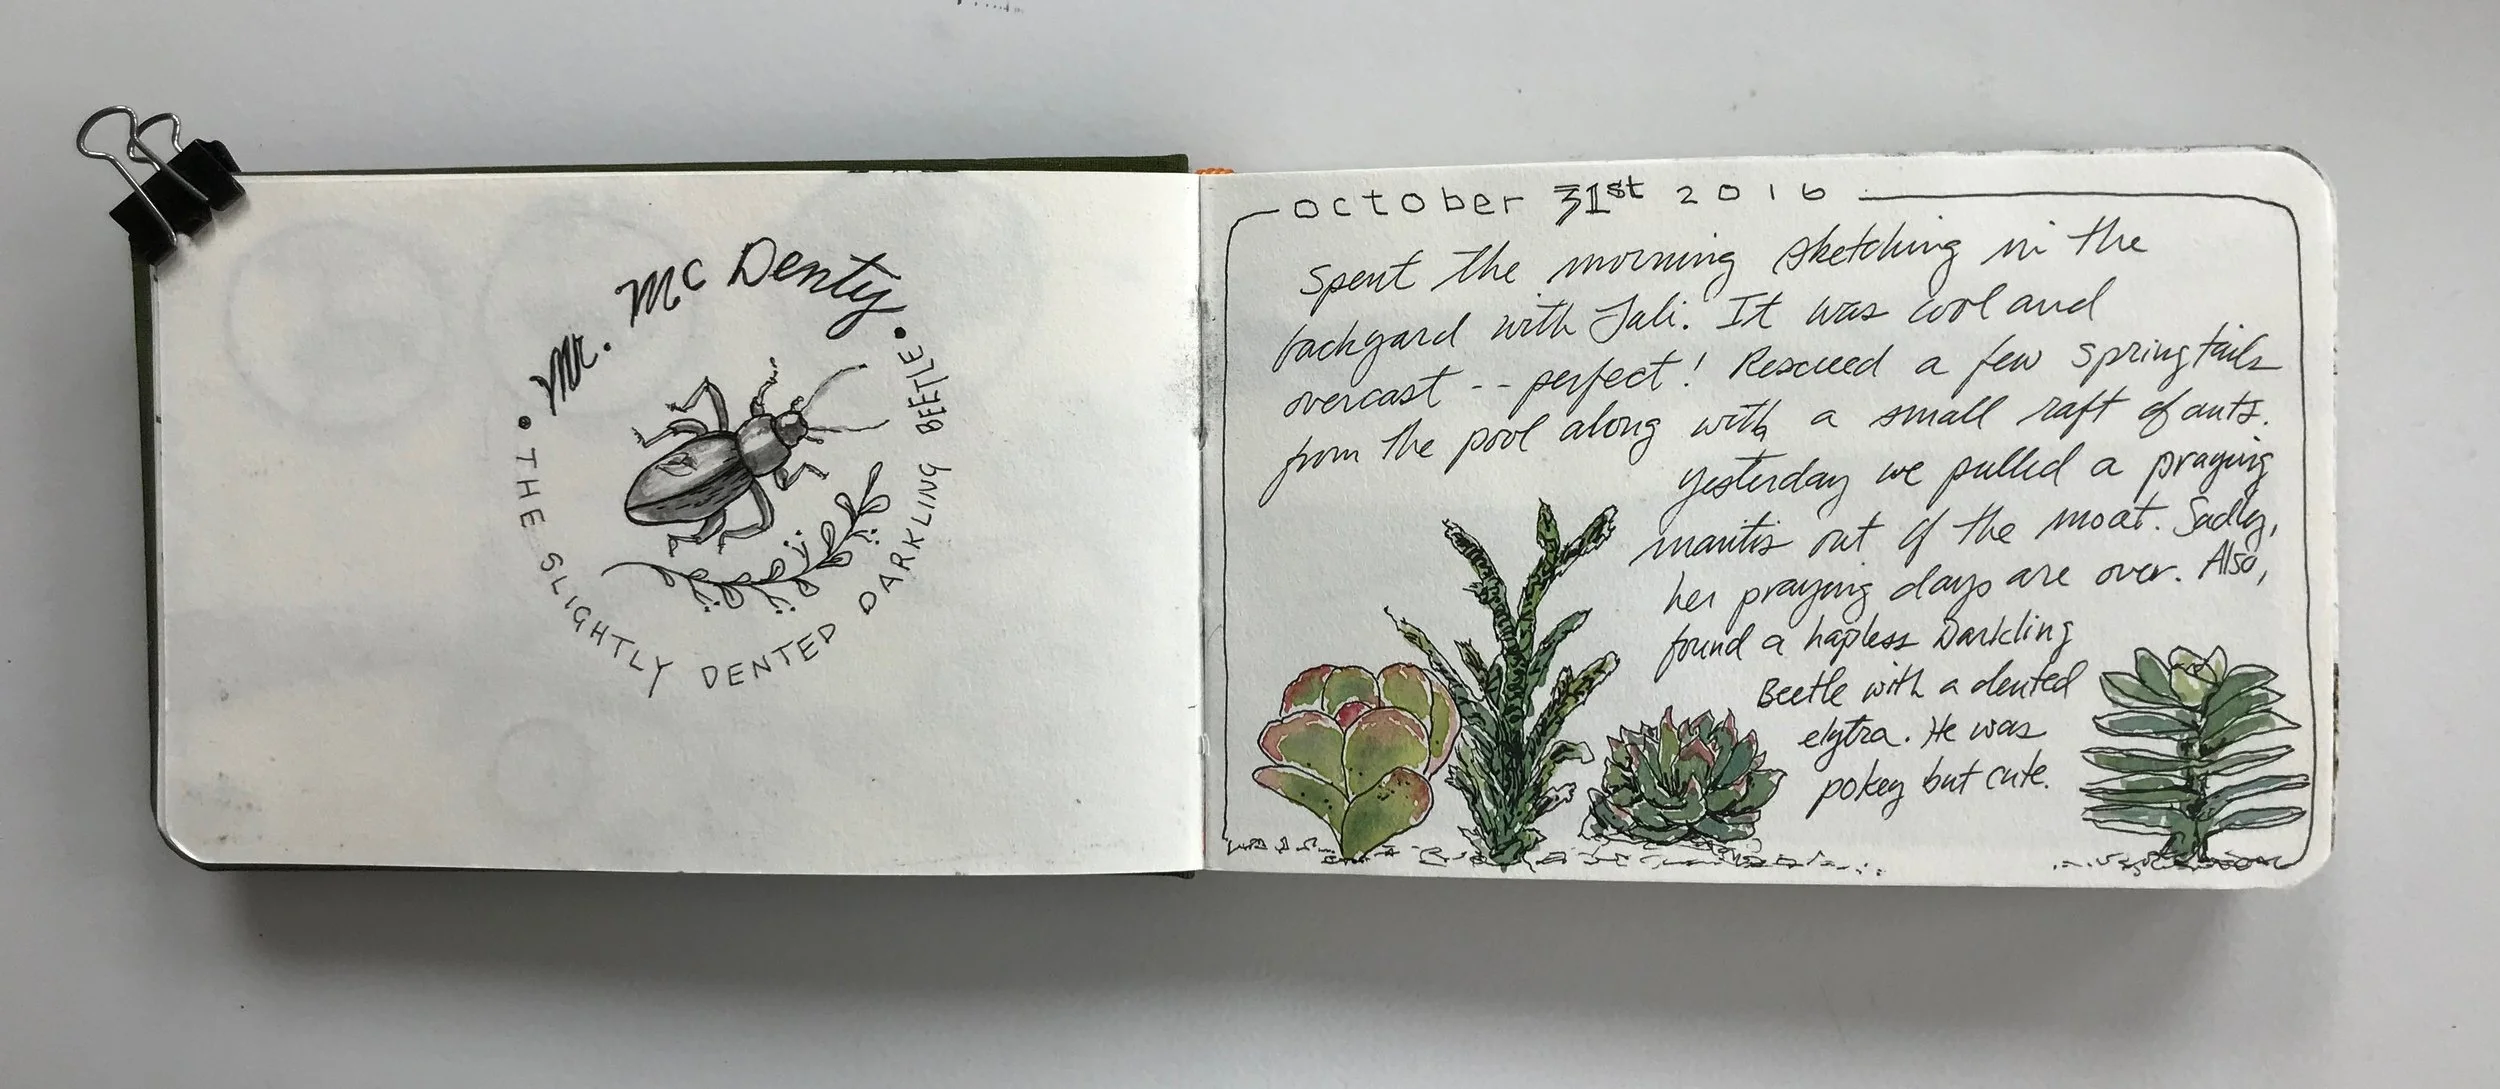 Mr. McDenty
• THE SLIGHTLY DENTED DARKLING BEETLE •
October 31st 2016
Spent the morning sketching in the
backyard with Jali. It was cool and
overcast -- perfect! Rescued a few springtails
from the pool along with a small raft of ants.
Yesterday we pulled a praying
mantis out of the moat. Sadly,
her praying days are over. Also,
found a hapless Darkling
Beetle with a dented
elytra. He was
pokey but cute.